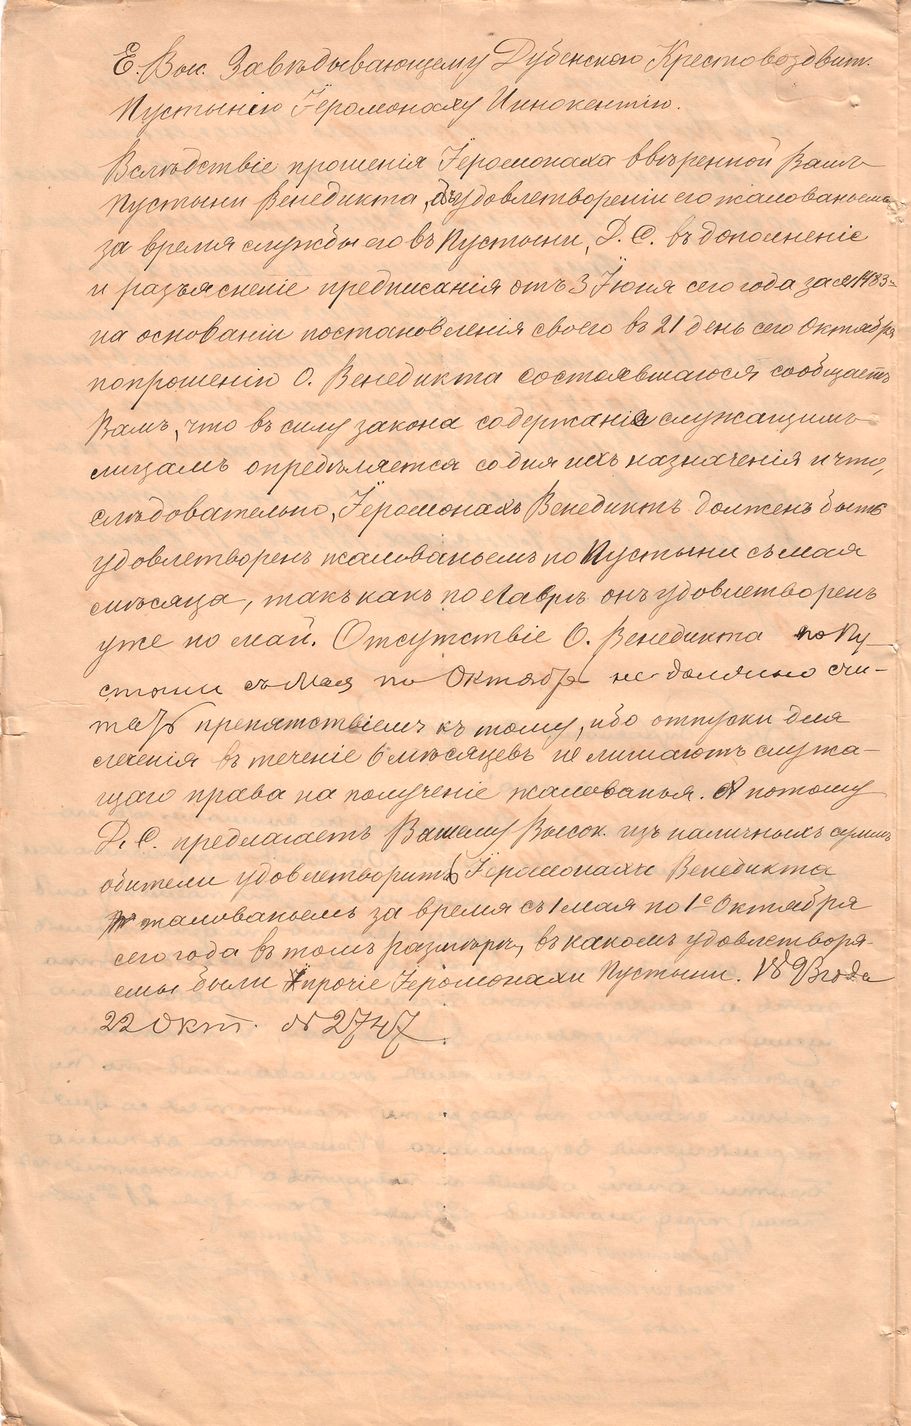 Е. Выс. Завѣдывающему Дубенскою Крестовоздвиж.
Пустынію Іеромонаху Иннокентію.
Вслѣдствіе прошенія Іеромонаха ввѣренной Вамъ
Пустыни Венедикта, объ удовлетвореніи его жалованьемъ
за время службы его въ Пустыни, Д. С. въ дополненіе
и разъясненіе предписанія отъ 3 Іюня сего года за № 1483
на основаніи постановленія своего въ 21 день сего Октября
по прошенію О. Венедикта состоявшагося сообщаетъ
Вамъ, что въ силу закона содержаніе служащимъ
лицамъ опредѣляется со дня ихъ назначенія и что,
слѣдовательно, Іеромонахъ Венедиктъ долженъ быть
удовлетворенъ жалованьемъ по Пустыни съ мая
мѣсяца, такъ какъ по Лаврѣ онъ удовлетворенъ
уже по май. Отсутствіе О. Венедикта по Пу-
стыни съ Мая по Октябрь не должно счи-
тать препятствіемъ къ тому, ибо отпуски для
леченія въ теченіе 6 мѣсяцевъ не лишаютъ служа-
щаго права на полученіе жалованья. А потому
Д. С. предлагаетъ Вашему Высок. изъ наличныхъ суммъ
обители удовлетворить Іеромонаха Венедикта
жалованьемъ за время съ 1 мая по 1е Октября
сего года въ томъ размѣрѣ, въ какомъ удовлетворя-
емы были прочіе Іеромонахи Пустыни. года
22 Окт. № 2747